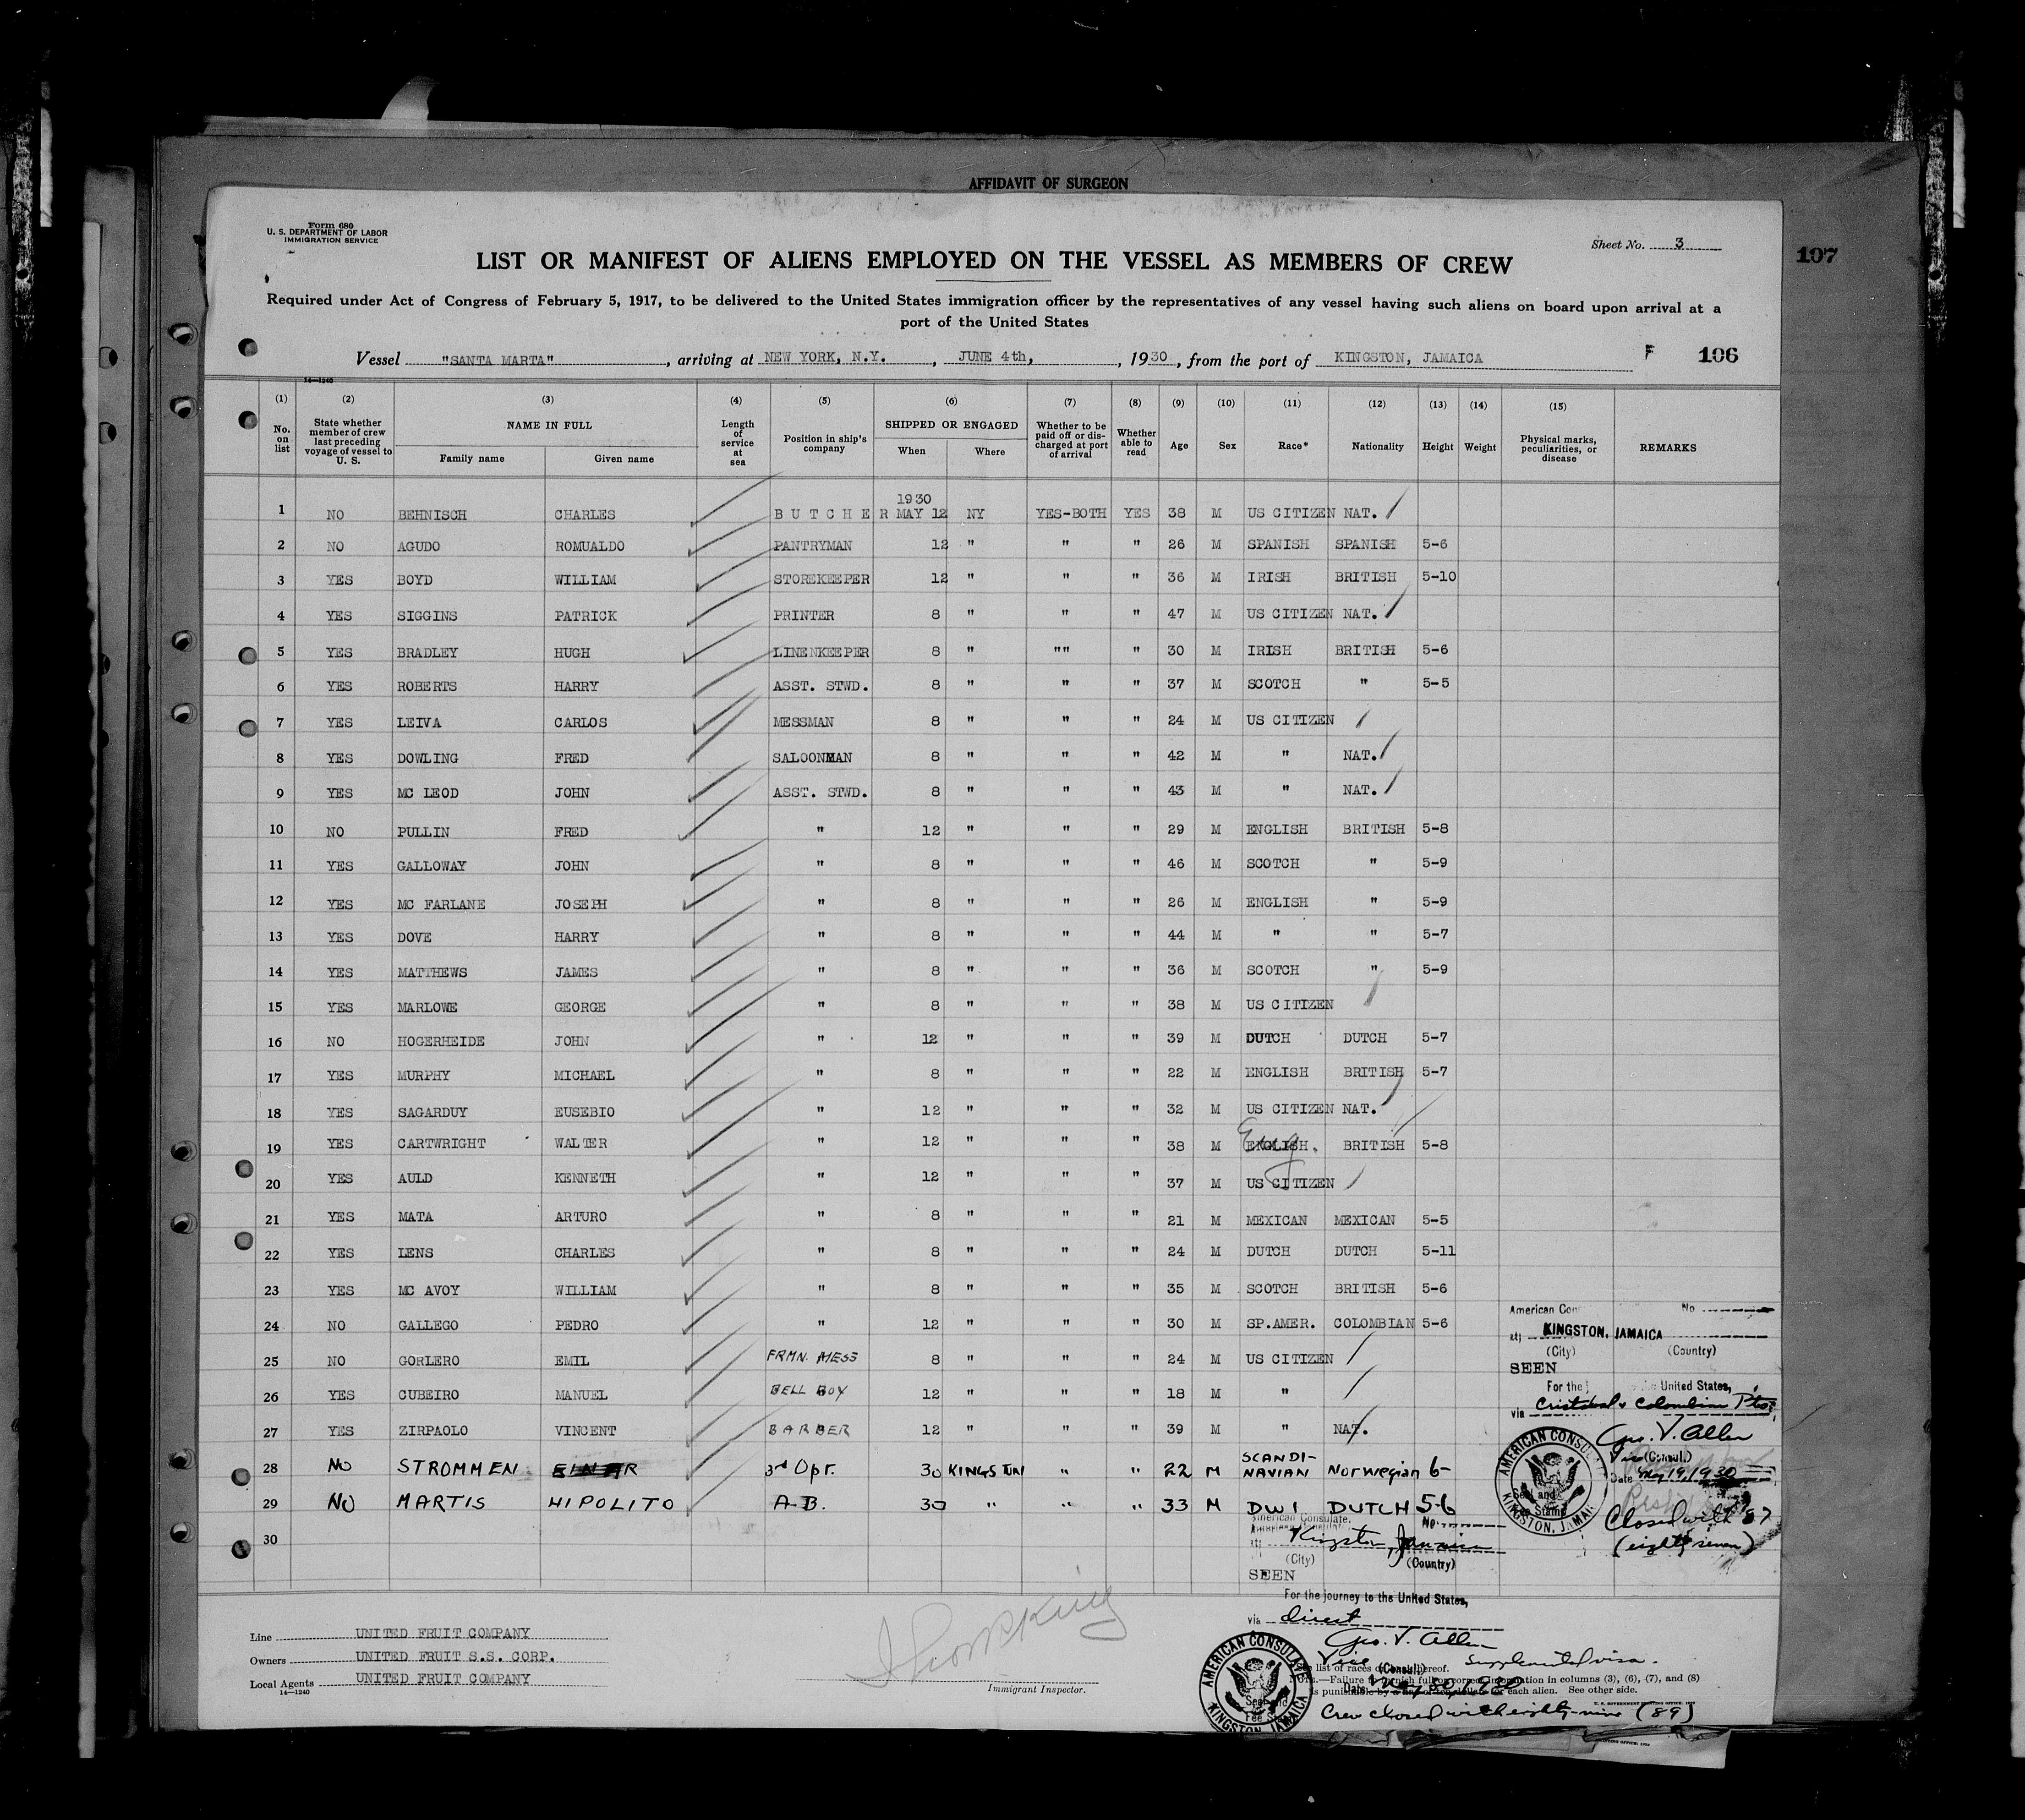 AFFIDAVIT OF SURGEON
Form 680
U. S. DEPARTMENT OF LABOR
IMMIGRATION SERVICE
Sheet No. 3
107
LIST OR MANIFEST OF ALIENS EMPLOYED ON THE VESSEL AS MEMBERS OF CREW
Required under Act of Congress of February 5, 1917, to be delivered to the United States immigration officer by the representatives of any vessel having such aliens on board upon arrival at a
port of the United States
Vessel "SANTA MARTA", arriving at NEW YORK, N.Y., JUNE 4th, , 1930, from the port of KINGSTON, JAMAICA F 106
14—1240
(1) (2) (3) (4) (5) (6) (7) (8) (9) (10) (11) (12) (13) (14) (15)
No. on list State whether member of crew last preceding voyage of vessel to U. S. NAME IN FULL Family name Given name Length of service at sea Position in ship's company SHIPPED OR ENGAGED When Where Whether to be paid off or discharged at port of arrival Whether able to read Age Sex Race* Nationality Height Weight Physical marks, peculiarities, or disease REMARKS
1930
1 NO BEHNISCH CHARLES BUTCHER MAY 12 NY YES-BOTH YES 38 M US CITIZEN NAT.
2 NO AGUDO ROMUALDO PANTRYMAN 12 " " " 26 M SPANISH SPANISH 5-6
3 YES BOYD WILLIAM STOREKEEPER 12 " " " 36 M IRISH BRITISH 5-10
4 YES SIGGINS PATRICK PRINTER 8 " " " 47 M US CITIZEN NAT.
5 YES BRADLEY HUGH LINENKEEPER 8 " "" " 30 M IRISH BRITISH 5-6
6 YES ROBERTS HARRY ASST. STWD. 8 " " " 37 M SCOTCH " 5-5
7 YES LEIVA CARLOS MESSMAN 8 " " " 24 M US CITIZEN
8 YES DOWLING FRED SALOONMAN 8 " " " 42 M " NAT.
9 YES MC LEOD JOHN ASST. STWD. 8 " " " 43 M " NAT.
10 NO PULLIN FRED " 12 " " " 29 M ENGLISH BRITISH 5-8
11 YES GALLOWAY JOHN " 8 " " " 46 M SCOTCH " 5-9
12 YES MC FARLANE JOSEPH " 8 " " " 26 M ENGLISH " 5-9
13 YES DOVE HARRY " 8 " " " 44 M " " 5-7
14 YES MATTHEWS JAMES " 8 " " " 36 M SCOTCH " 5-9
15 YES MARLOWE GEORGE " 8 " " " 38 M US CITIZEN
16 NO HOGERHEIDE JOHN " 12 " " " 39 M DUTCH DUTCH 5-7
17 YES MURPHY MICHAEL " 8 " " " 22 M ENGLISH BRITISH 5-7
18 YES SAGARDUY EUSEBIO " 12 " " " 32 M US CITIZEN NAT.
19 YES CARTWRIGHT WALTER " 12 " " " 38 M ENGLISH. Eng BRITISH 5-8
20 YES AULD KENNETH " 12 " " " 37 M US CITIZEN
21 YES MATA ARTURO " 8 " " " 21 M MEXICAN MEXICAN 5-5
22 YES LENS CHARLES " 8 " " " 24 M DUTCH DUTCH 5-11
23 YES MC AVOY WILLIAM " 8 " " " 35 M SCOTCH BRITISH 5-6
24 NO GALLEGO PEDRO " 12 " " " 30 M SP.AMER. COLOMBIAN 5-6
25 NO GORLERO EMIL FRMN. MESS 8 " " " 24 M US CITIZEN
26 YES CUBEIRO MANUEL BELL BOY 12 " " " 18 M "
27 YES ZIRPAOLO VINCENT BARBER 12 " " " 39 M " NAT.
28 NO STROMMEN EINAR 3rd Opr. 30 KINGSTON " " 22 M SCANDINAVIAN Norwegian 6-
29 NO MARTIS HIPOLITO A-B. 30 " " " 33 M DWI DUTCH 5-6
30
American Con No
at KINGSTON, JAMAICA
(City) (Country)
SEEN
For the United States,
via Cristobal & Colombian Pts.
Geo. V. Allen
Vice (Consul.)
Date May 19, 1930
AMERICAN CONSULATE KINGSTON, JAMAICA
Seal and Fee Stamp
Closed with 87
(eighty seven)
American Consulate. No.
at Kingston, Jamaica
(City) (Country)
SEEN
For the journey to the United States,
via direct
Geo. V. Allen
Vice (Consul.) Supplemental visa.
Date
AMERICAN CONSULATE KINGSTON, JAMAICA
Seal and Fee Stamp
Crew closed with eighty-nine (89)
Line UNITED FRUIT COMPANY
Owners UNITED FRUIT S.S. CORP.
Local Agents UNITED FRUIT COMPANY
14—1240
Immigrant Inspector.
list of races on back hereof.
—Failure to furnish full or correct information in columns (3), (6), (7), and (8)
is punishable by a fine of ten dollars for each alien. See other side.
U. S. GOVERNMENT PRINTING OFFICE